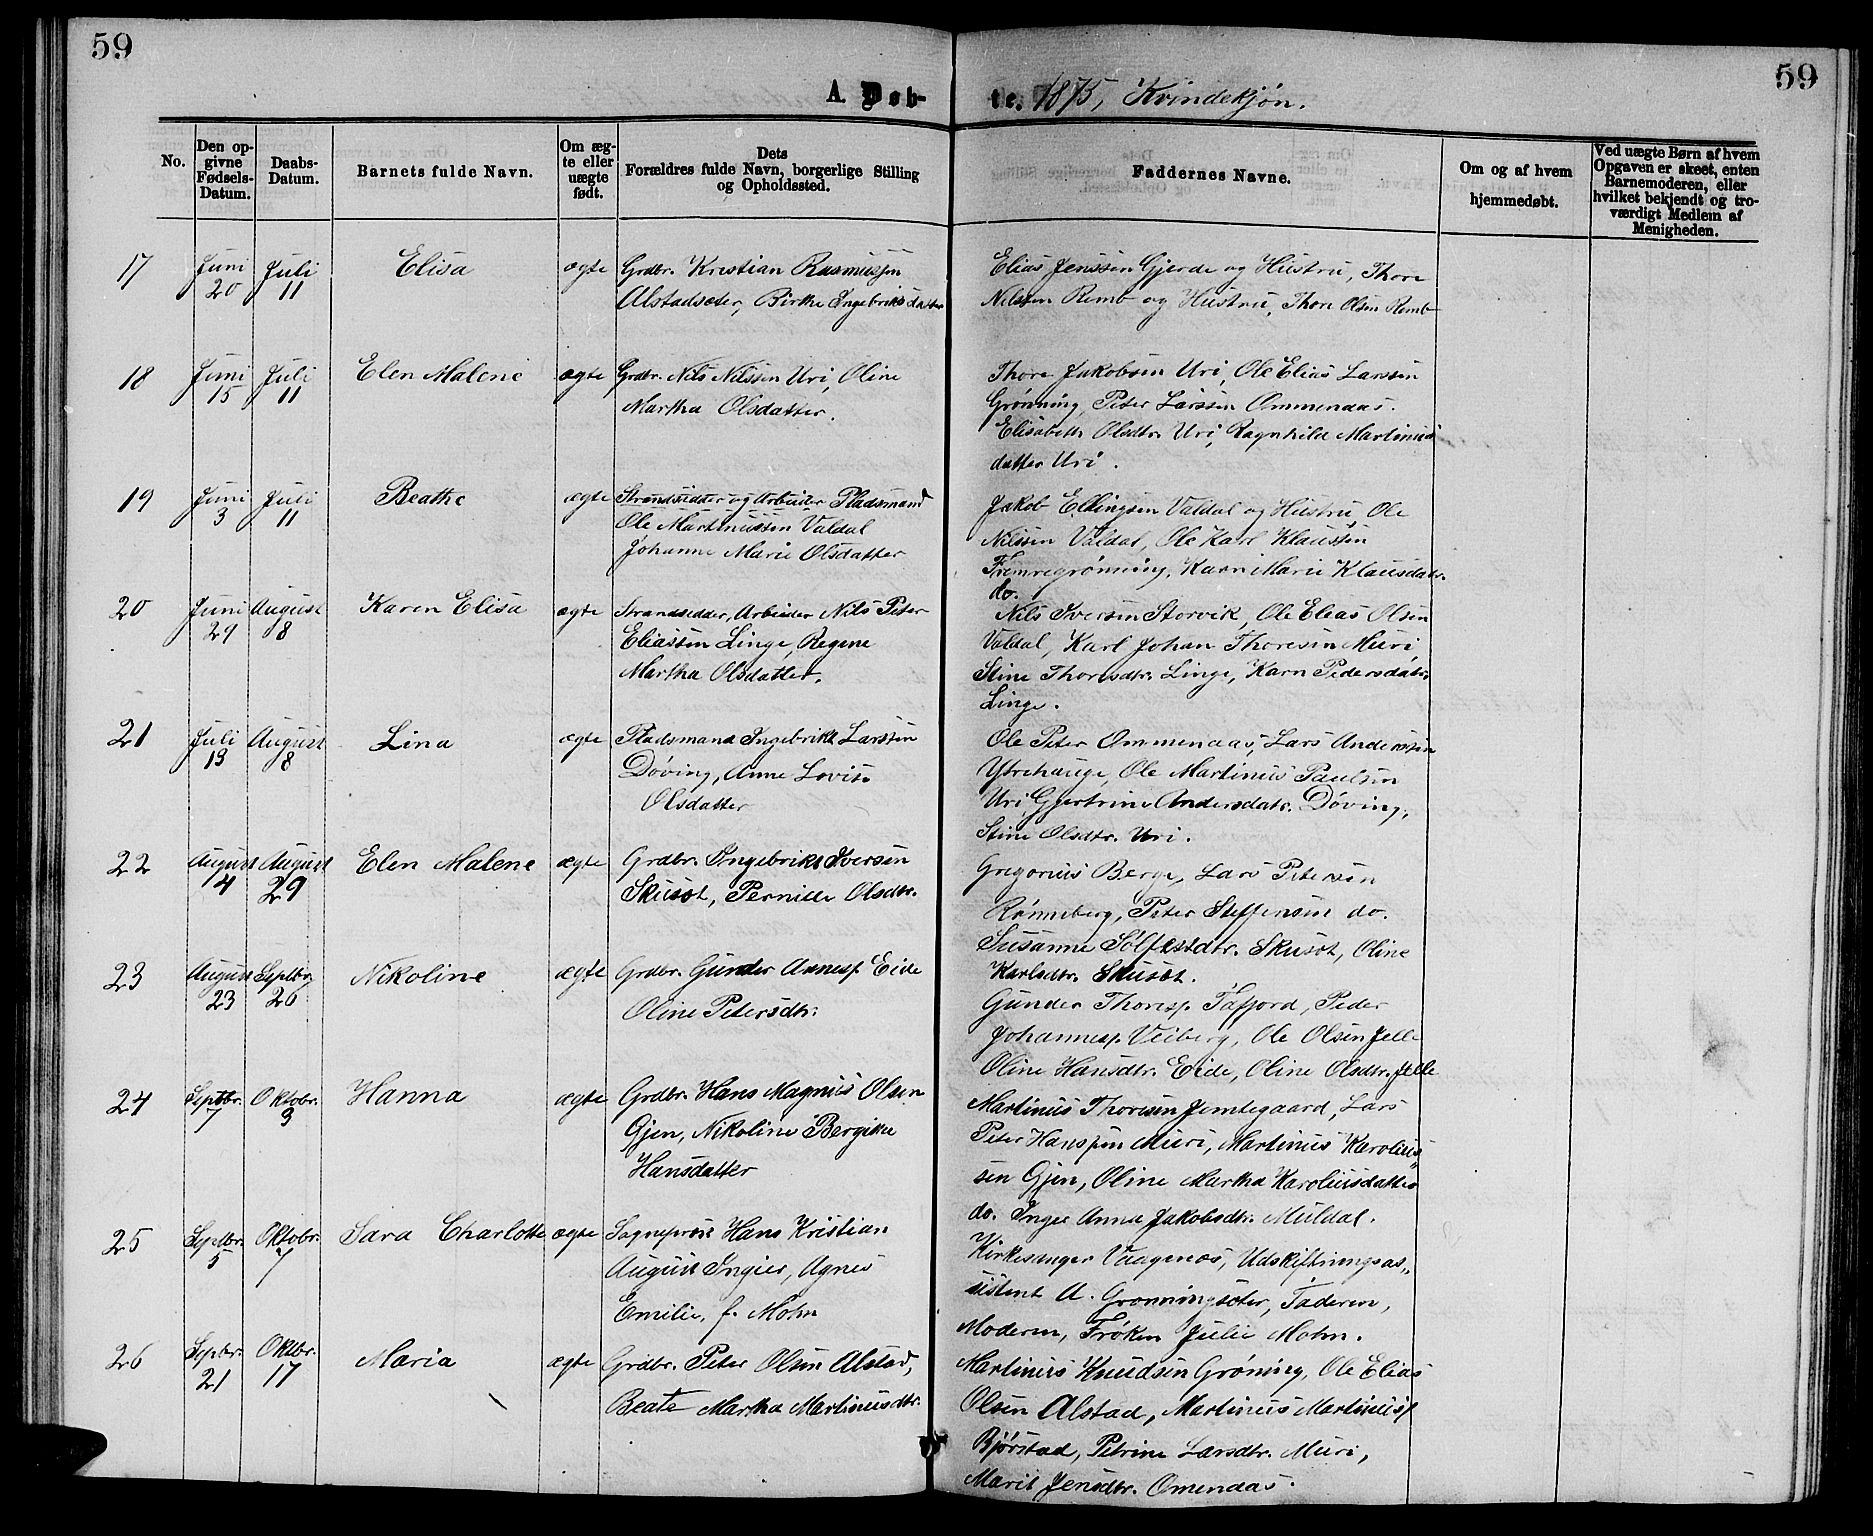 59
59
A. Døb-
te. 1875, Kvindekjøn.
No.
Den op-
givne
Fødsels-
Datum.
Daabs-
Datum.
Barnets fulde Navn.
Om æg-
te eller
uægte
født.
Dets
Forældres fulde Navn, borgerlige Stilling
og Opholdssted.
Faddernes Navne.
Om og af hvem
hjemmedøbt.
Ved uægte Børn af hvem
Opgaven er skeet, enten
Barnemoderen, eller
hvilket bekjendt og tro-
værdigt Medlem af
Menigheden.
17 Juni 20 Juli 11 Elisa ægte Grdbr. Kristian Rasmussen
Alstadsæter, Birthe Ingebriktsdatter
Elias Jenssen Gjerde og Hustru, Thore
Nilssen Remb og Hustru, Thore Olsen Remb
18 Juni 15 Juli 11 Elen Malene ægte Grdbr. Nils Nilssen Uri, Oline
Martha Olsdatter.
Thore Jakobsen Uri, Ole Elias Larssen
Grønning, Peter Larssen Ommendaas.
Elisabeth Olsdtr. Uri, Ragnhild Martinus
datter Uri.
19 Juni 3 Juli 11 Beathe ægte Strandsidder og Arbeider Pladsmand
Ole Martinussen Valdal
Johanne Marie Olsdatter
Jakob Ellingsen Valdal og Hustru, Ole
Nilssen Valdal, Ole Karl Klaussen
Fremregrønning, Karn Marie Klausdatr.
do.
20 Juni 29 August 8 Karen Elisa ægte Strandsidder, Arbeider Nils Peter
Eliassen Linge, Regine
Martha Olsdatter.
Nils Iversen Storvik, Ole Elias Olsen
Valdal, Karl Johan Thoresen Muri,
Stine Thoresdtr. Linge, Karn Pedersdatr.
Linge.
21 Juli 13 August 8 Lina ægte Pladsmand Ingebrikt Larssen
Døving, Anne Lovise
Olsdatter
Ole Peter Ommendaas, Lars Anderssen
Ytrehauge, Ole Martinus Paulsen
Uri, Gjertrine Andersdatr. Døving,
Stine Olsdtr. Uri.
22 August 14 August 29 Elen Malene ægte Grdbr. Ingebrikt Iversen
Skusøt, Pernille Olsdtr.
Gregorius Berge, Lars Petersen
Rønneberg, Peter Steffensen do.
Susanne Sølfestdtr. Skusøt, Oline
Karlsdtr. Skusøt.
23 August 23 Septbr 26 Nikoline ægte Grdbr. Gunder Anness. Eide
Oline Petersdtr.
Gunder Thoress. Tafjord, Peder
Johanness. Veiberg, Ole Olsen Jelle
Oline Hansdtr. Eide, Oline Olsdtr. Jelle
24 Septbr. 7 Oktobr. 3 Hanna ægte Grdbr. Hans Magnus Olsen
Gjen, Nikoline Bergitte
Hansdatter
Martinus Thoresen Jemtegaard, Lars
Peter Hanssen Muri, Martinus Karolius
sen Gjen, Oline Martha Karoliusdatter
do. Inger Anna Jakobsdtr. Muldal.
25 Septbr. 5 Oktobr. 7 Sara Charlotte ægte Sogneprest Hans Kristian
August Ingier, Agnes
Emilie, f. Mohn
Kirkesanger Vaagenes, Udskiftningsas„
sistent A. Grønningsæter, Faderen,
Moderen, Frøken Julie Mohn.
26 Septbr. 21 Oktbr. 17 Maria ægte Grdbr. Peter Olsen Alstad,
Beate Martha Martinusdtr.
Martinus Knudsen Grøning, Ole Elias
Olsen Alstad, Martinus Martinuss.
Bjørstad, Petrine Larsdtr. Muri,
Marit Jensdtr. Omendaas.